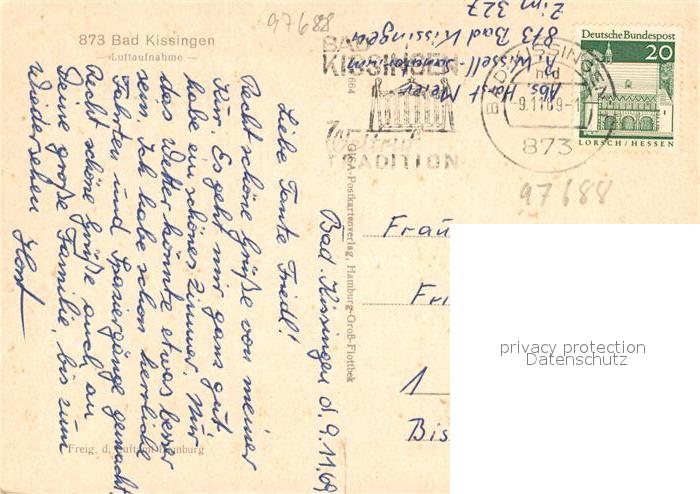 97688
873 Bad Kissingen
-Luftaufnahme-
Bad Kissingen d. 9.11.69
Liebe Tante Friedl!
Recht schöne Grüße von meiner
Kur. Es geht mir ganz gut
habe ein schönes Zimmer. Nur
das Wetter könnte etwas besser
sein. Ich habe schon herrliche
Fahrten und Spaziergänge gemacht.
Recht schöne Grüße auch an
Deine große Familie, bis zum
Wiedersehen Horst
Freig. d. Luftamt Hamburg
GEGA-Postkartenverlag, Hamburg-Groß-Flottbek
664
Abs. Horst Meier
Sanatorium
873 Bad Kissingen
Zim 327
BAD
KISSINGEN
Weltruf
TRADITION
BAD KISSINGEN
md
-9.11.69-1
873
Deutsche Bundespost
20
LORSCH/HESSEN
97688
Frau
Fri
1
Bis
privacy protection
Datenschutz